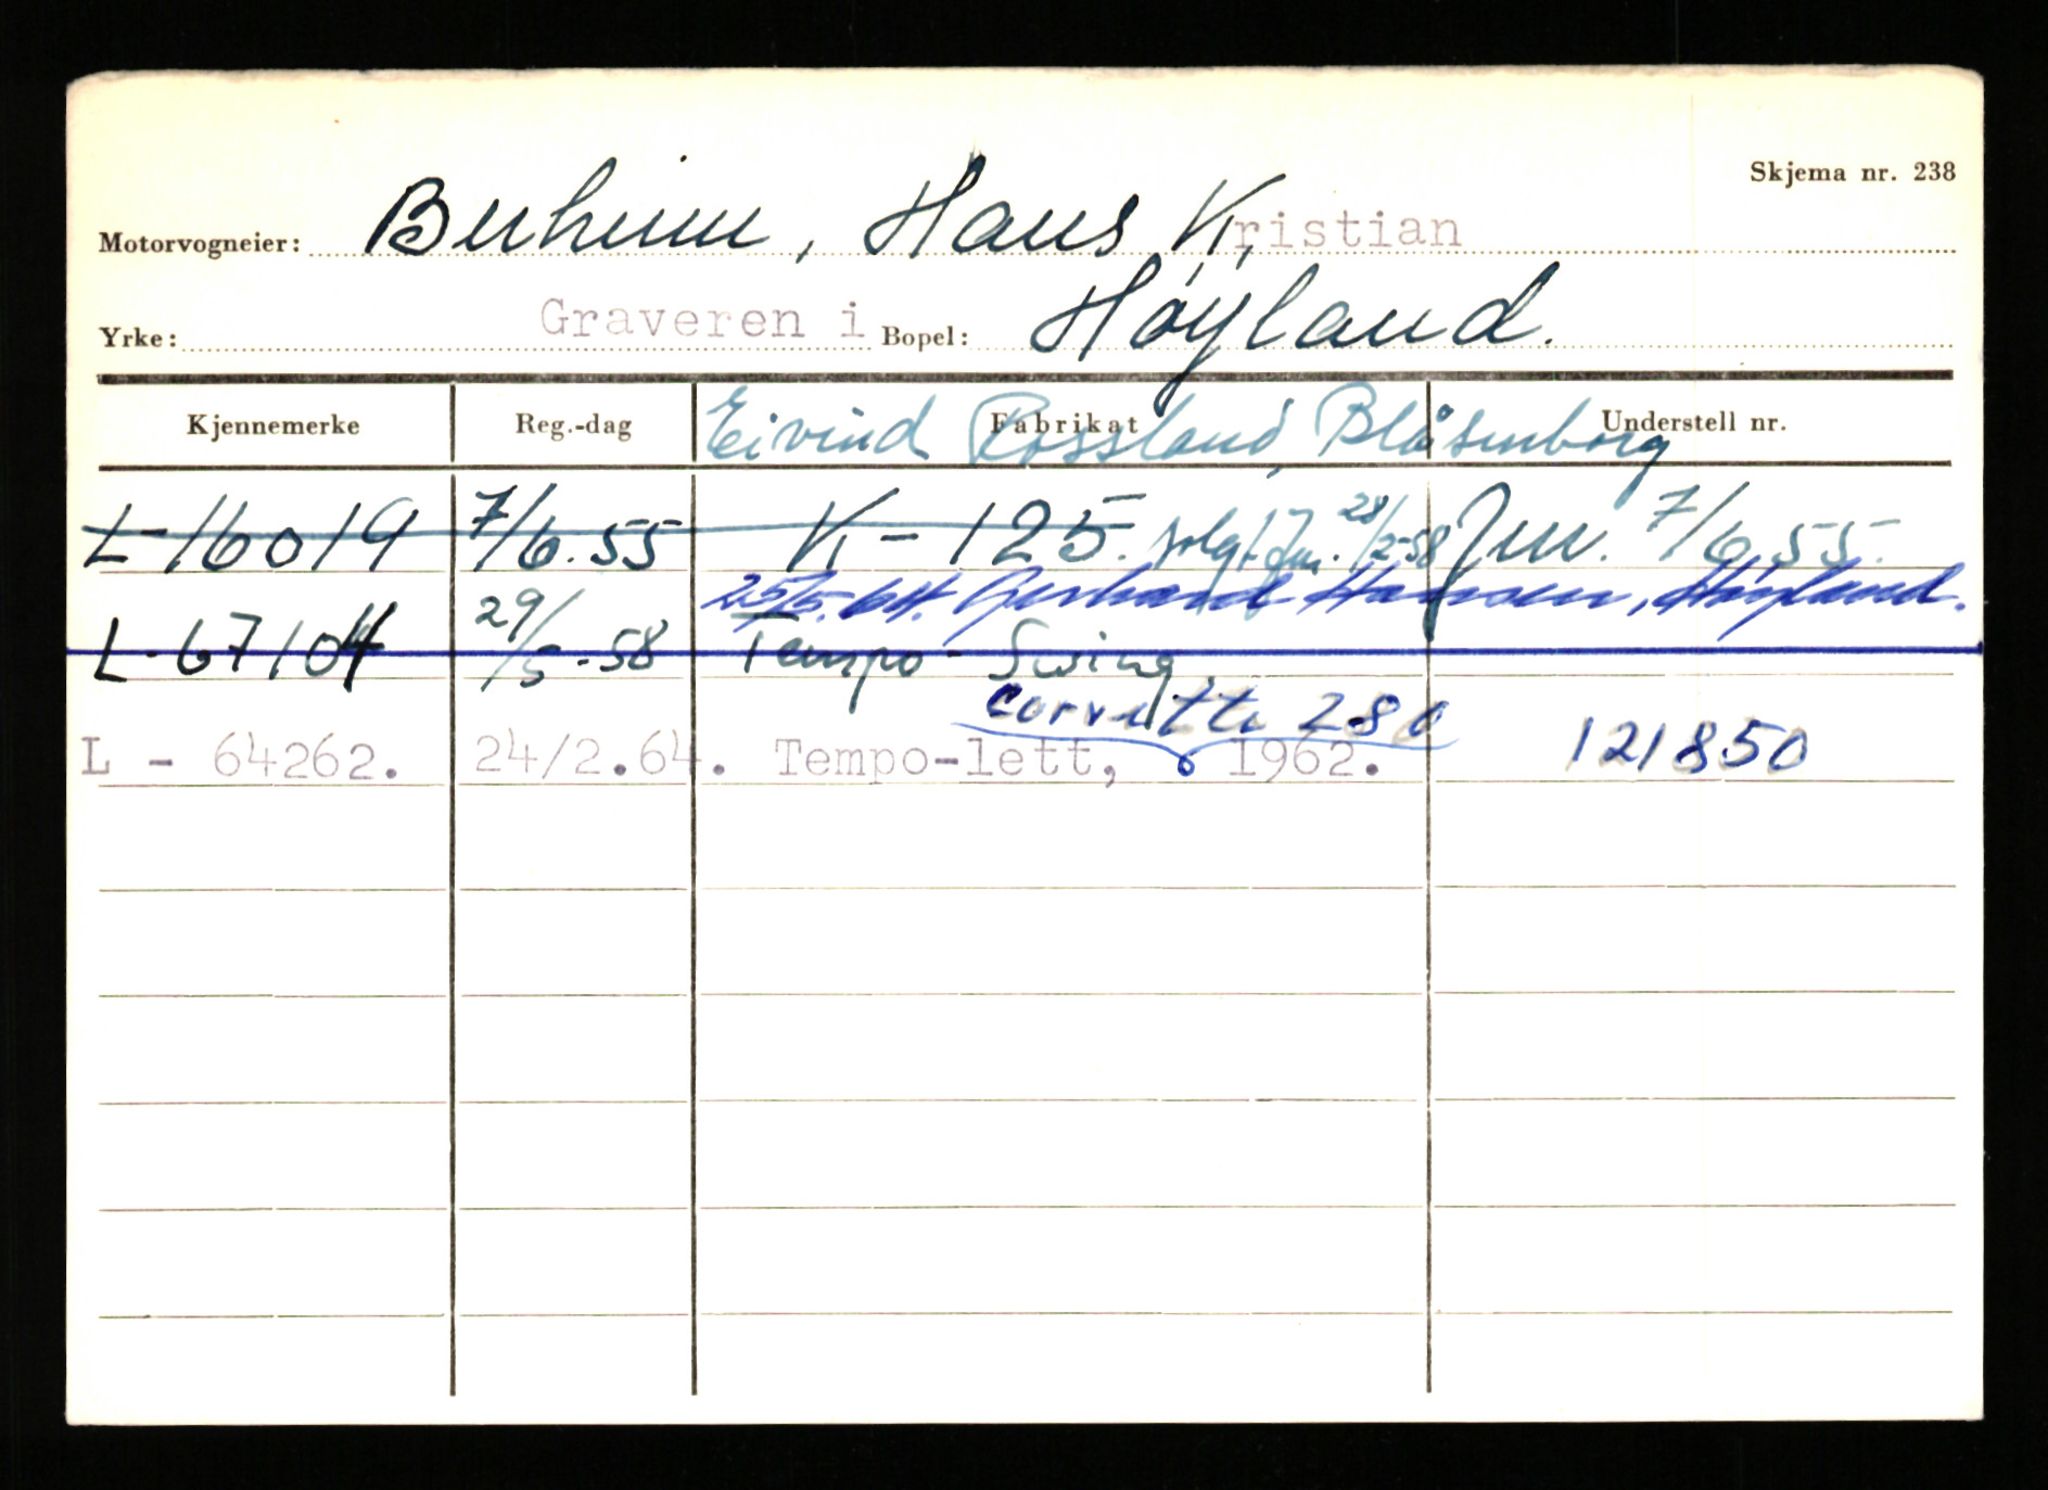 Skjema nr. 238
Motorvogneier: Buheim, Hans Kristian
Yrke: Graveren i Bopel: Høyland.
Kjennemerke Reg.-dag Fabrikat Understell nr.
Eivind Rossland, Blåsenborg
L-16019 7/6.55 K-125. solgt 28/2-58 7/6.55.
25/5.64. Gerhard Hansen, Høyland.
L-67104 29/5-58 Tempo-Swing
Corvette 280
L - 64262. 24/2.64. Tempo-lett, 1962. 121850